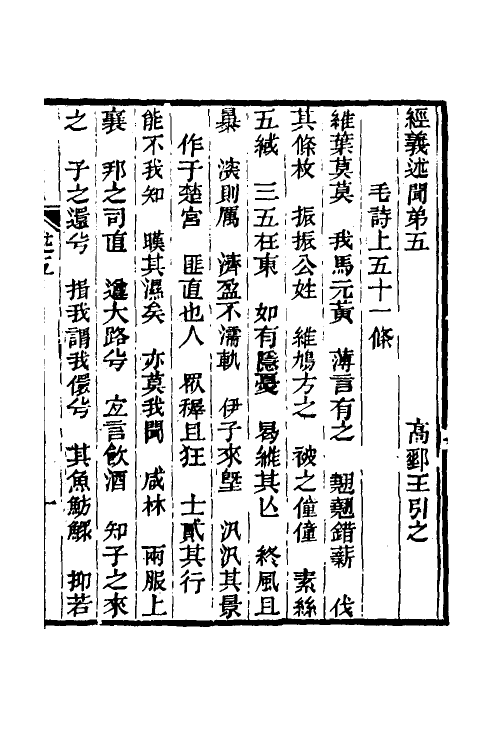 經義述聞弟五　高郵王引之
毛詩上五十一條
維葉莫莫　我馬元黃　薄言有之　翹翹錯薪　伐
其條枚　振振公姓　維鳩方之　被之僮僮　素絲
五緎　三五在東　如有隱憂　曷維其亾　終風且
暴　深則厲　濟盈不濡軌　伊予來墍　汎汎其景
作于楚宮　匪直也人　眾穉且狂　士貳其行
能不我知　暵其濕矣　亦莫我聞　咸林　兩服上
襄　邦之司直　遵大路兮　宜言飲酒　知子之來
之　子之還兮　揖我謂我儇兮　其魚魴鰥　抑若